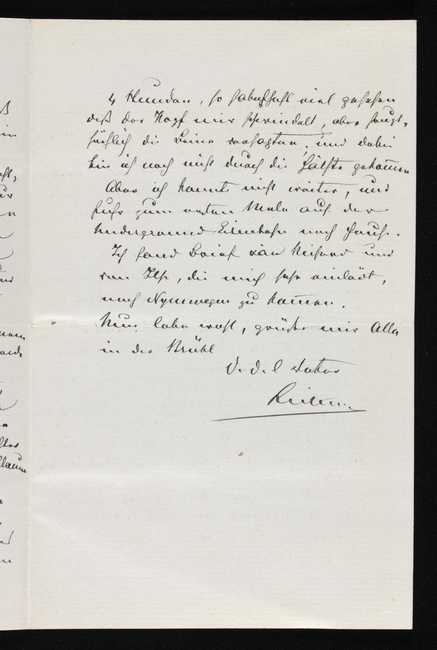 4 Stunden, so fabelhaft viel gesehen
daß der Kopf mir schwindelt, aber haupt-
sächlich die Beine versagten, und dabei
bin ich noch nicht durch die Hälfte gekommen
Aber ich konnte nicht weiter, und
fuhr zum ersten Male auf der
Underground Eisenbahn nach Hause.
Ich fand Brief von und
von Ilse, die mich sehr einlädt,
nach Nymwegen zu kommen.
Nun lebe wohl, grüße mir Alle
in der Brühl
D. d. l. Vater